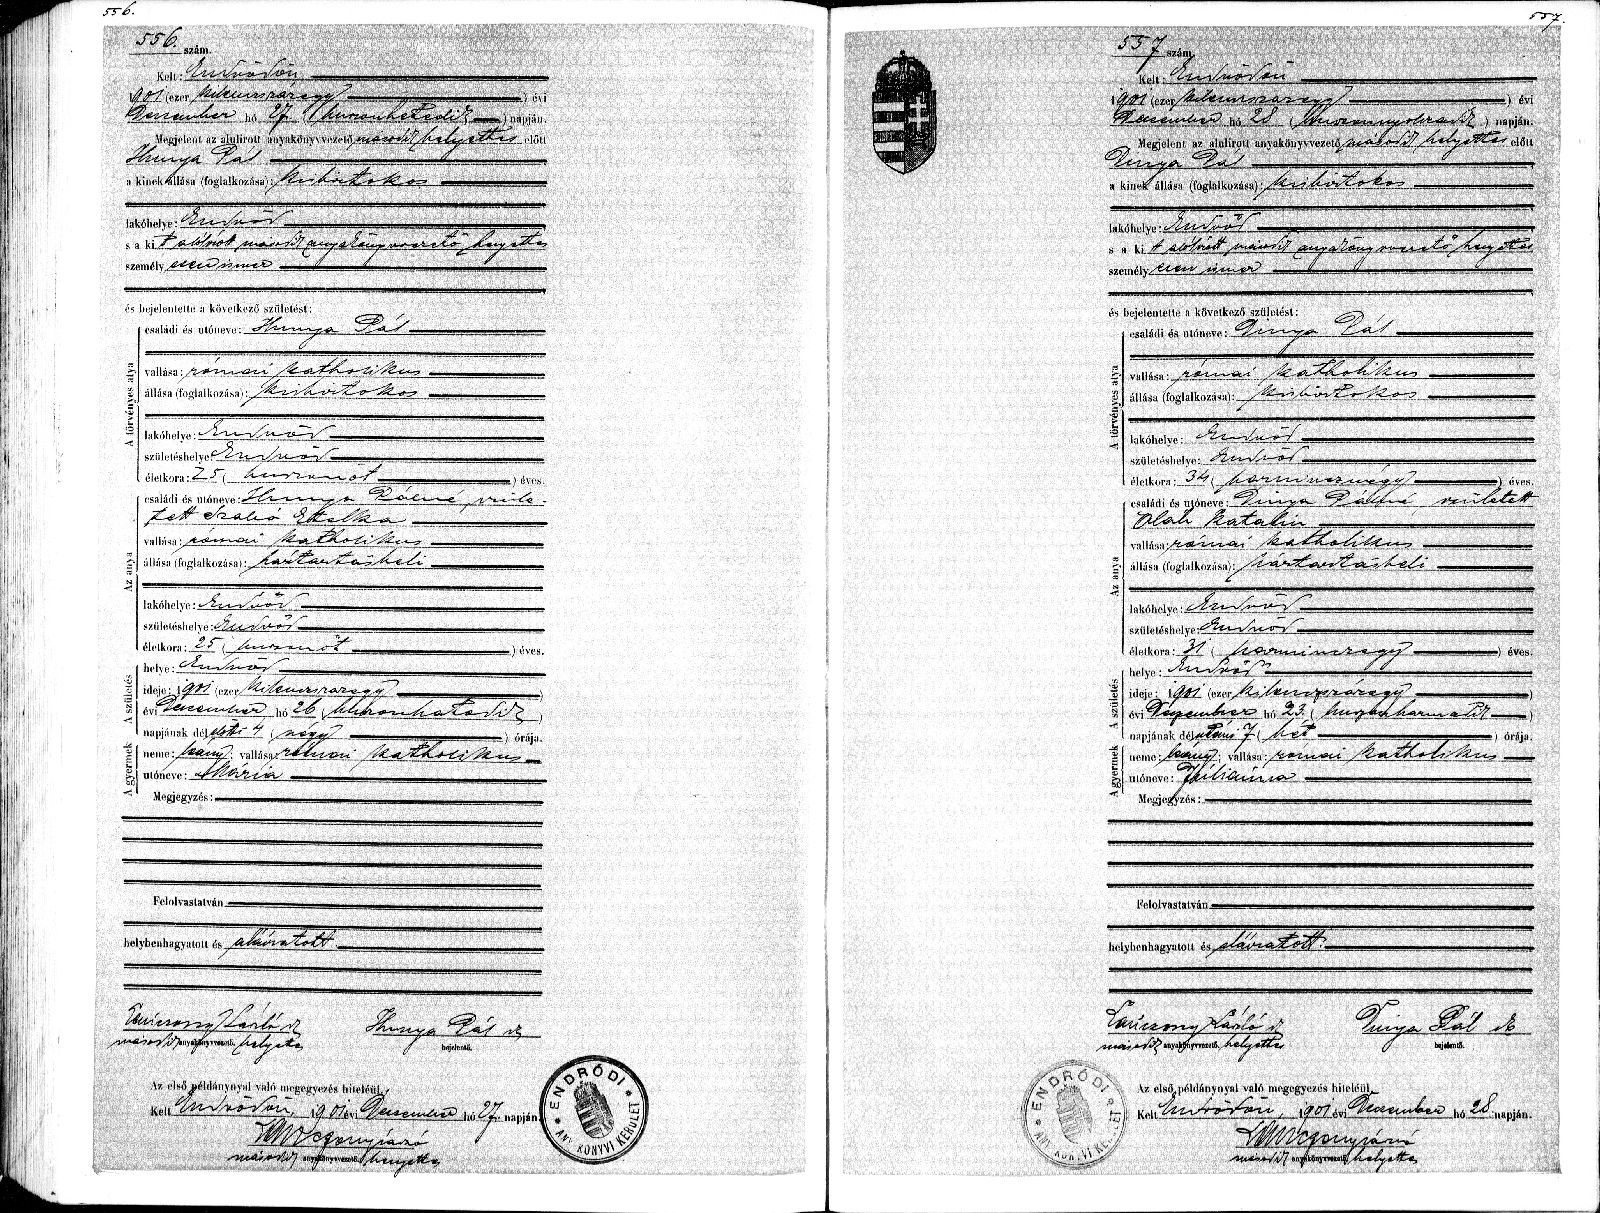 556.
556. szám.
Kelt: Endrődön
1901 (ezer kilenczszázegy) évi
Deczember hó 27. (huszonhetedik) napján.
Megjelent az alulirott anyakönyvvezető második helyettes előtt
Hunya Pál
a kinek állása (foglalkozása): kisbirtokos
lakóhelye: Endrőd
s a kit alólirott második anyakönyvvezető helyettes
személyesen ismer
és bejelentette a következő születést:
A törvényes atya
családi és utóneve: Hunya Pál
vallása: római katholikus
állása (foglalkozása): kisbirtokos
lakóhelye: Endrőd
születéshelye: Endrőd
életkora: 25 (huszonöt) éves.
Az anya
családi és utóneve: Hunya Pálné, szüle-
tett Szabó Etelka
vallása: római katholikus
állása (foglalkozása): háztartásbeli
lakóhelye: Endrőd
születéshelye: Endrőd
életkora: 25 (huszonöt) éves.
A születés
helye: Endrőd
ideje: 1901 (ezer kilenczszázegy)
évi Deczember hó 26 (huszonhatodik)
napjának délelőtti 4 (négy) órája.
A gyermek
neme: leány; vallása: római katholikus
utóneve: Mária
Megjegyzés:
Felolvastatván
helybenhagyatott és aláiratott.
László sk
Hunya Pál sk
második anyakönyvvezető helyettes
bejelentő.
Az első példánynyal való megegyezés hiteléül.
Kelt Endrődön, 1901 évi Deczember hó 27. napján.
második anyakönyvvezető helyettes
* ENDRŐDI * ANYAKÖNYVI KERÜLET
557.
557 szám.
Kelt: Endrődön
1901 (ezer kilenczszázegy) évi
Deczember hó 28 (huszonnyolczadik) napján.
Megjelent az alulirott anyakönyvvezető második helyettes előtt
Dinya Pál
a kinek állása (foglalkozása): kisbirtokos
lakóhelye: Endrőd
s a kit alólirott második anyakönyvvezető helyettes
személyesen ismer
és bejelentette a következő születést:
A törvényes atya
családi és utóneve: Dinya Pál
vallása: római katholikus
állása (foglalkozása): kisbirtokos
lakóhelye: Endrőd
születéshelye: Endrőd
életkora: 34 (harmincznégy) éves.
Az anya
családi és utóneve: Dinya Pálné született
Oláh Katalin
vallása: római katholikus
állása (foglalkozása): háztartásbeli
lakóhelye: Endrőd
születéshelye: Endrőd
életkora: 31 (harminczegy) éves.
A születés
helye: Endrőd
ideje: 1901 (ezer kilenczszázegy)
évi Deczember hó 23. (huszonharmadik)
napjának délutáni 7 (hét) órája.
A gyermek
neme: leány; vallása: római katholikus
utóneve: Juliánna
Megjegyzés:
Felolvastatván
helybenhagyatott és aláiratott.
László sk
Dinya Pál sk
második anyakönyvvezető helyettes
bejelentő.
Az első példánynyal való megegyezés hiteléül.
Kelt Endrődön, 1901 évi Deczember hó 28. napján.
második anyakönyvvezető helyettes
* ENDRŐDI * ANYAKÖNYVI KERÜLET